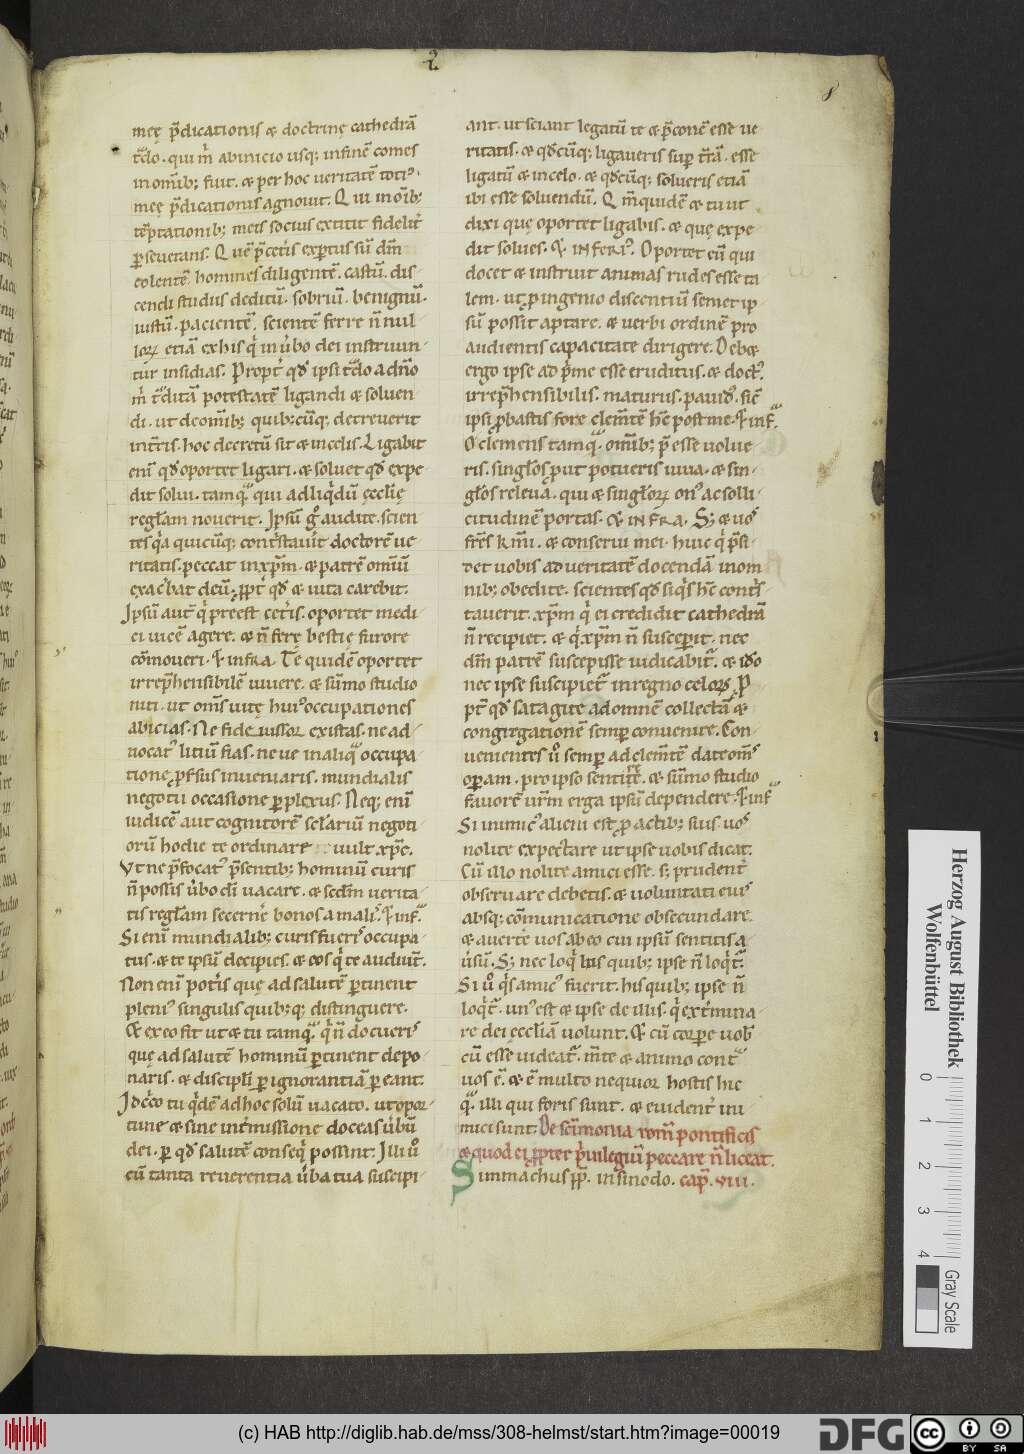 2
8
meę p̄dicationis & doctrinę cathedrā
t̄do. qui m̄ abinicio usq; infinē comes
in omīb; fuit. & per hoc ueritatē toti᷒
meę p̄dicationis agnouit. Qui in oīb;
tēptationib; meis socius extitit fideliť
ꝑseuerans. Quē p̄ceťis exꝑtus sū dm̄
colentē. hominesdiligentē. castū. dis
cendi studiis deditū. sobriū. benignū.
iustū. pacientē. scientē ferre n̄ nul
loꝝ etiā ex his q̇ in ūbo dei instruun
tur insidias. Propť qd̄ ipsi t̄do a dn̄o
m̄ t̄ditā potestatē ligandi & soluen
di. ut deomīb; quib;cūq; decreuerit
int̄ris. hoc decretū sit & incelis. Ligabit
enī qd̄ oportet ligari. & soluet qd̄ expe
dit solui. tamq̄. qui adliq̇dū ęcclię
regłam nouerit. Ipsū g̊ audite. scien
tes q̇a quicūq; cont̄stauīt doctorē ue
ritatis. peccat inxp̄m. & patrē omīū
exac̄bat deū. ꝓpť qd̄ & uita carebit.
Ipsū aut̄ q̇ preest ceťis. oportet medi
ci uicē agere. & n̄ ferę bestię furore
cōmoueri. & infra. Te quidē oportet
irrep̄hensibilē uiuere. & sūmo studio
niti. ut om̄s uitę hui᷒ occupationes
abicias. Ne fide iussor existas. ne ad
uocat᷒ litiū fias. neue inaliq̄ occupa
tionę ꝓrsus inueniaris. mundialis
negotii occasione ꝑplexus. Neq; enī
iudicē aut cognitorē sclariū negoti
orū hodie te ordinare uult xp̄c.
Vt ne p̄focat᷒ p̄sentib; hominū curis
n̄ possis ūbo di ̄ uacare. & sedm̄ uerita
tis regłam secerneř bonos a malis. & inf.
Si enī mundialib; curis fueris occupa
tus. & te ipsū decipies. & eos q̇ te audiunt.
Non enī poťis quę ad salutē ꝑtinent
pleni᷒ singulis quib;q; distinguere.
Et ex eo fit ut & tu tamq̄. q̇ n̄ docueris
quę ad salutē hominū ꝑtinent depo
naris. & discipli ꝑ ignorantiā ꝑeant.
Idc̊co tu q̇dē ad hoc solū uacato. ut opor
tune & sine inťmissione doceas ūbū
dei. ꝑ qd̄ salutē conseq̇ possint. Illi u̇
cū tanta reuerentia ūba tua suscipi
ant. ut sciant legatū te & p̄conē esse ue
ritatis. & qd̄cūq; ligaueris suꝑ t̄rā. esse
ligatū & incelo. & qd̄cūq; solueris etiā
ibi esse soluendū. Q m̄ quidē & tu ut
dixi quę oportet ligabis. & quę expe
dit solues. & inferi᷒. Oportet eū qui
docet & instruit animas rudes esse ta
lem. ut ꝓ ingenio discentiū semet ip
sū possit aptare. & uerbi ordinē pro
audientis capacitate dirigere. Deb&
ergo ipse ad p̄me esse eruditus. & doct᷒.
irrep̄hensibilis. maturus. pauid᷒. sic̄
ipsi ꝓbastis fore clem̄tē hc̄ post me. & inf̄.
O clemens tamq̄. omīb; p̄esse uolue
ris. singłos put potueris iuua. & sin
głos releua. qui & singłoꝝ on᷒ ac solli
citudinē portas. & infra. S; & uos
fr̄es k̄mi. & conserui mei. huic q̇ p̄si
det uobis ad ueritatē docendā in om
nib; obedite. scientes qd̄ siq̇s hc̄ contis̄
tauerit. xp̄m q̇ ei credidit cathedrā
n̄ recipiet. & q̇ xp̄m n̄ susceꝑit. nec
dm̄ patrē suscepisse iudicabit̄. & id̊o
nec ipse suscipiet̄ in regno celoꝝ. ꝓ
pt̄ qd̄ satagite ad omnē collectā &
congregationē semꝑ conuenire. Con
uenientes u̇ semꝑ ad clem̄tē date om̄s
oꝑam. pro ipso sentire. & sūmo studio
fauorē ur̄m erga ipsū dependere. & inf̄
Si inimic᷒ alicui est ꝓ actib; suis uos
nolite expectare ut ipse uobis dicat.
Cū illo nolite amici esse. s; prudenť
obseruare debetis. & uoluntati eius
absq; cōmunicatione obsecundare.
& auerte uos ab eo cui ipsū sentitis a
ūsū. S; nec loq̇ his quib; ipse n̄ loq̇t̄.
Si u̇ q̇s amic᷒ fuerit. his quib; ipse n̄
loq̇t̄. un᷒ est & ipse de illis. q̇ exťmina
re dei ęccliam uolunt. & cū corpe uob̄
cū esse uideat̄. m̄te & animo cont̄
uos ē. & ē multo nequior hostis hic
q̄. illi qui foris sunt. & euidenť ini
mici sunt. De scīmonia rom̄ pontificis
& quod ei ꝓpter p̄uilegiū peccare n̄ liceat.
Simmachus pp̄. insinodo. cap̄. viii.
Herzog August Bibliothek
Wolfenbüttel
0 1 2 3 4
Gray Scale
(c) HAB http://diglib.hab.de/mss/308-helmst/start.htm?image=00019
DFG
cc
BY SA